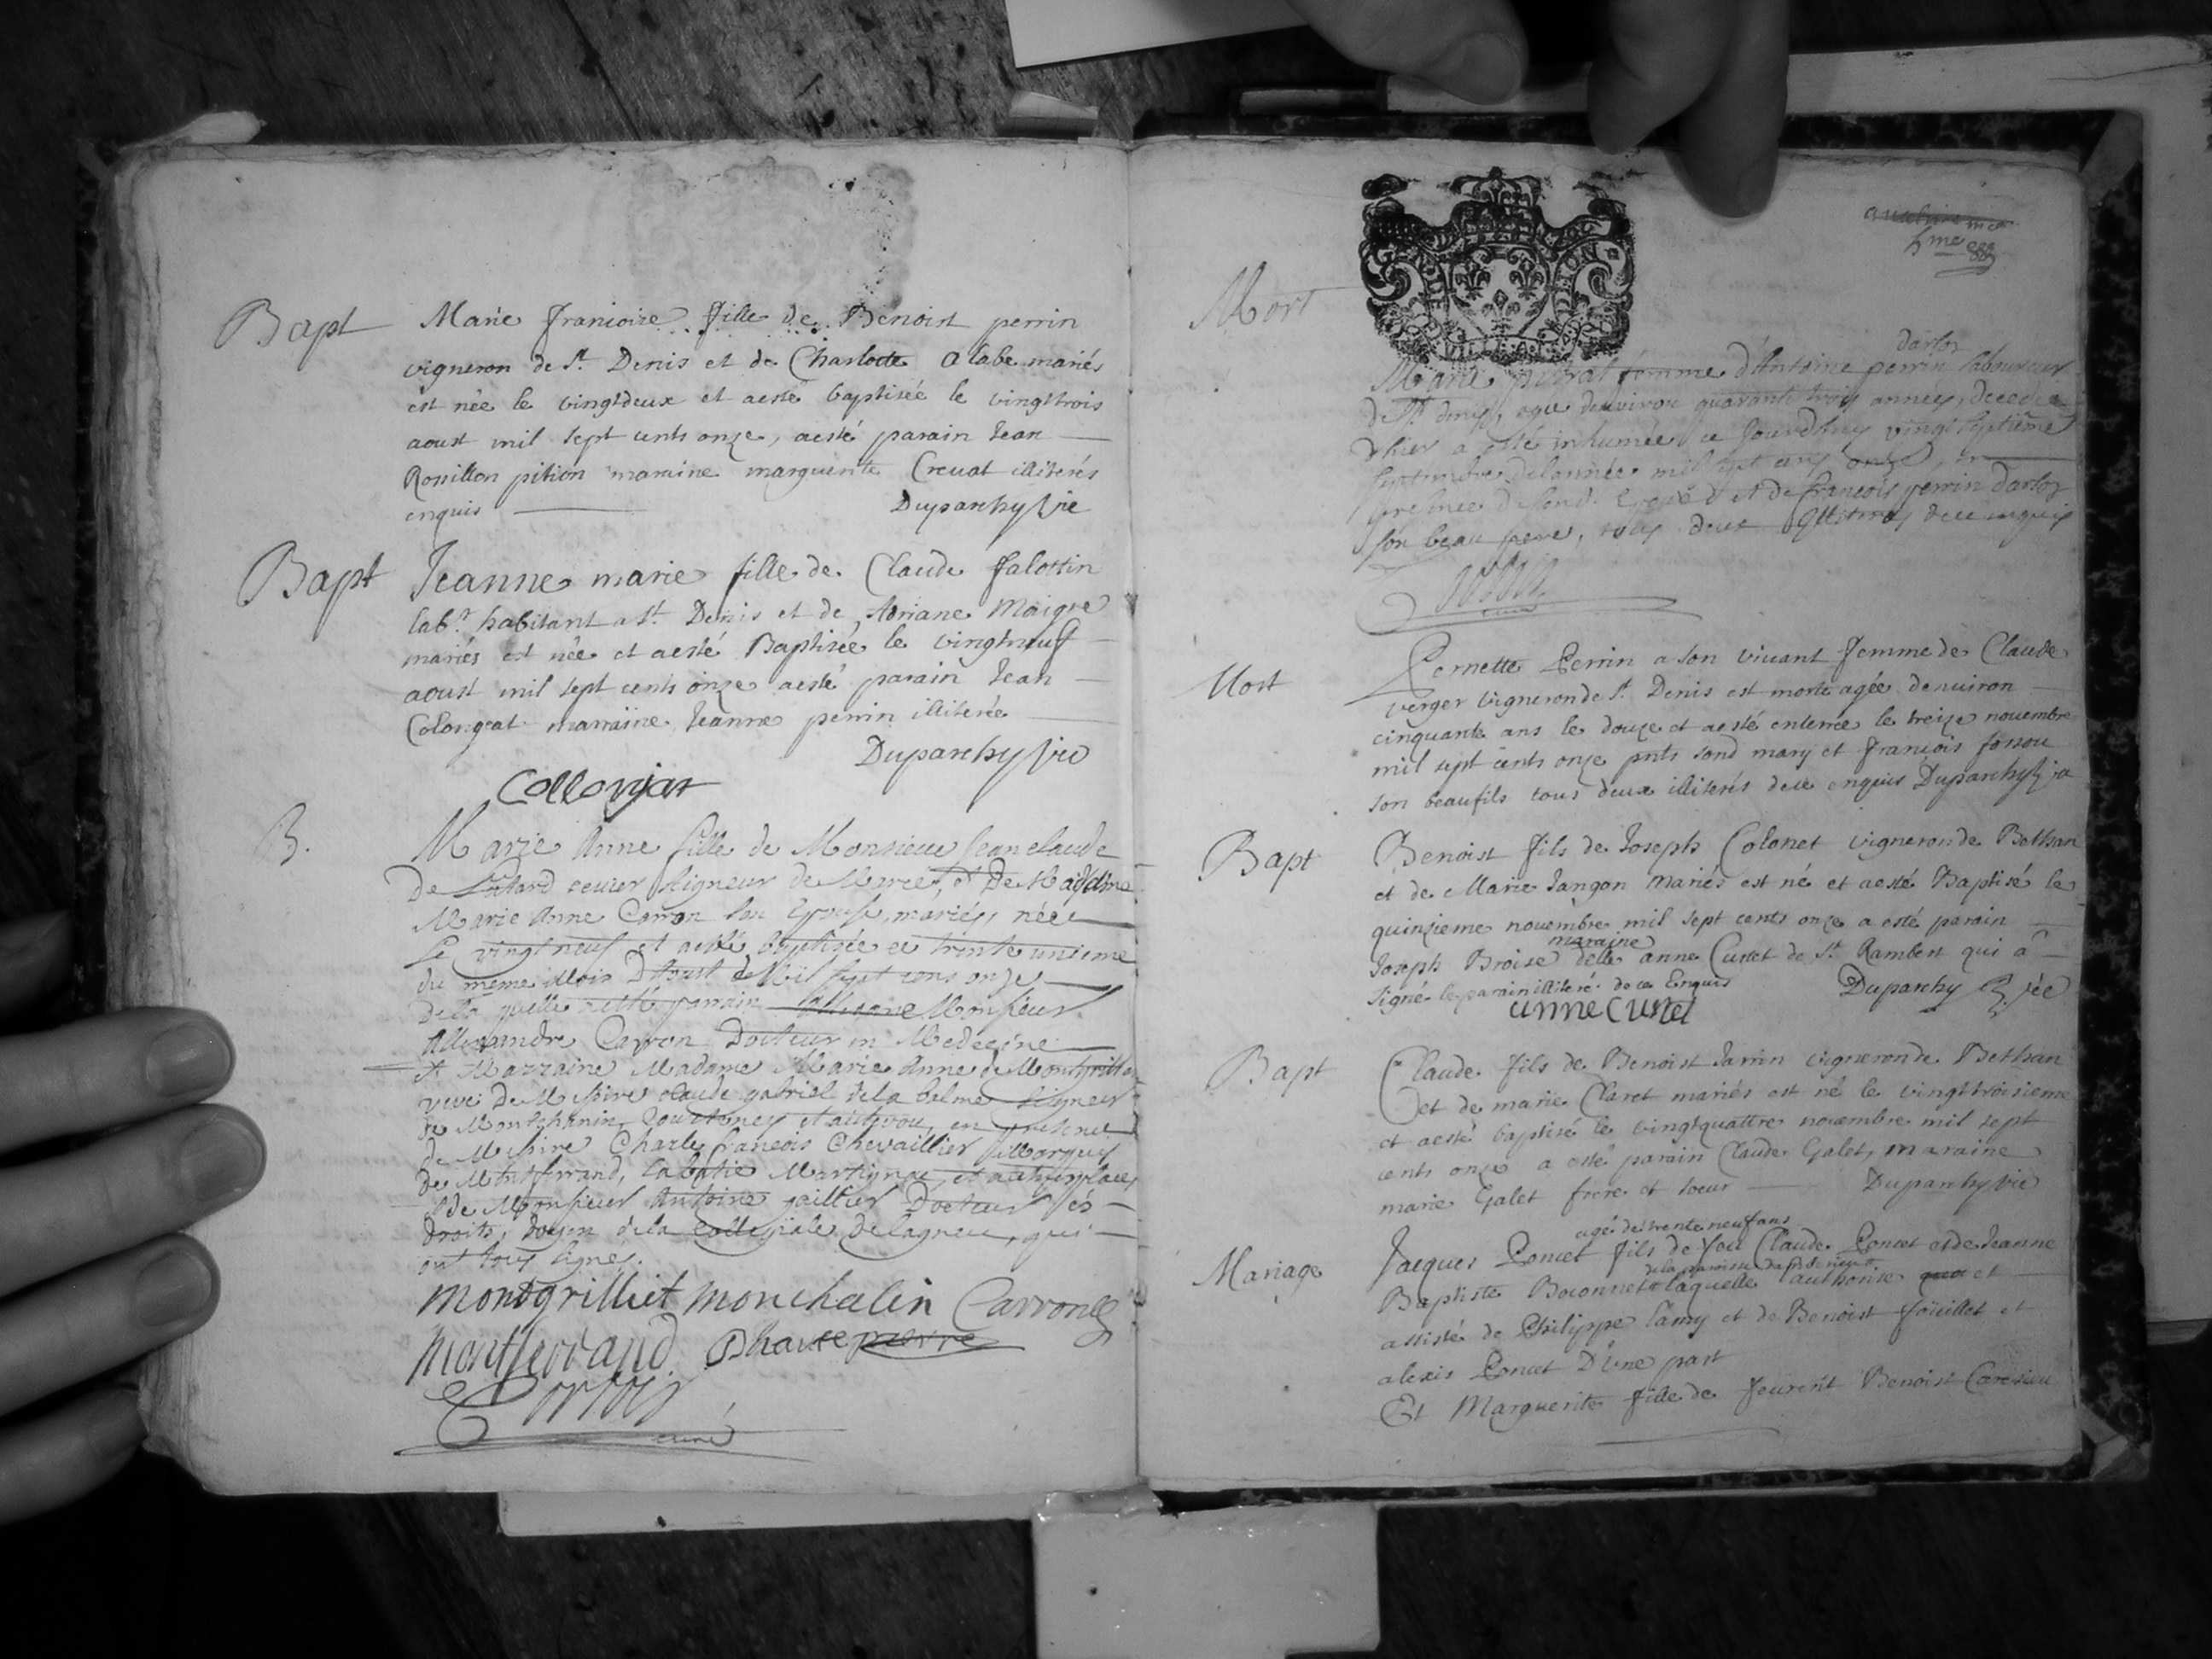 Bapt
Marie françoise fille de Benoist perrin
vigneron de St Denis et de Charlotte alabe mariés
est née le vingtdeux et aesté baptisée le vingttrois
aoust mil sept cents onze, aesté parain Jean
Rosillon pition maraine marguerite Crevat illiterés
enquis
Duparchy vic
Bapt
Jeanne marie fille de Claude falottin
labr habitant a St Denis et de Adriane Maigre
mariés est née et aesté Baptisée le vingtneuf
aoust mil sept cents onze aesté parain Jean
Colongeat marraine Jeanne perrin illiterée
Duparchy vic
Collonjat
B.
Marie Anne fille de Monsieur Jean claude
De ecuier seigneur de et De Madame
Marie Anne Carron son Epouse, mariés, née
Le vingt neuf et aesté baptisée le trente unieme
du même Mois D'Aoust de Mil sept cens onze
De la quelle a esté parrain Monsieur
Allexandre Carron Docteur en Medecine
et Marraine Madame Marie Anne de Montgrillet
veuve De Messire claude gabriel de la balme seigneur
de en presence
de Messire Charle françois Chevaillier Marquis
De Montferrand, la batie Martignac, et autres places
& de Monsieur Antoine gaillier Docteur és
droits, Doyen de la Collegiale de lagneu, qui
ont tous signes.
montgrilliet monchalin Carron
montferrand Dhautepierre
curé
Mort
5me
darloz
Marie femme d'Antoine perrin laboureur
de St denis, agée denviron quarante trois années, decedée
d'hier a esté inhumée ce Jourdhuy vingt septieme
septembre de l'année mil sept cens onze, en
presence de et de françois perrin darloz
son beau pere, tous deux illiterés de ce enquis
curé
Mort
Pernette Perrin a son vivant femme de Claude
verger vigneron de St Denis est morte agée denuiron
cinquante ans le douze et aesté enterrée le treize novembre
mil sept cents onze pnts sond mary et françois fossou
son beaufils tous deux illiterés dece enquis Duparchy vic
Bapt
Benoist fils de Joseph Colonet vigneron de Bethan
et de Marie Jangon mariés est né et aesté Baptisé le
quinzieme novembre mil sept cents onze a esté parain
maraine
Joseph Broise delle anne Curtet de St Rambert qui a
signé le parain illiteré de ce Enquis
Duparchy vic
anne Curtet
Bapt
Claude fils de Benoist Jarrin vigneron de Bethan
et de marie Claret mariés est né le vingttroisieme
et aesté baptisé le vingtquattre novembre mil sept
cents onze a esté parain Claude Galet, maraine
marie Galet frere et soeur
Duparchy vic
Mariage
agé de trente neuf ans
Jacques Poncet fils de feu Claude Poncet et de Jeanne
de la paroisse
Baptiste laquelle authorise et
assisté de Philippe lamy et de Benoist foüillet et
alexis Poncet D'une part
Et Marguerite fille de Benoist